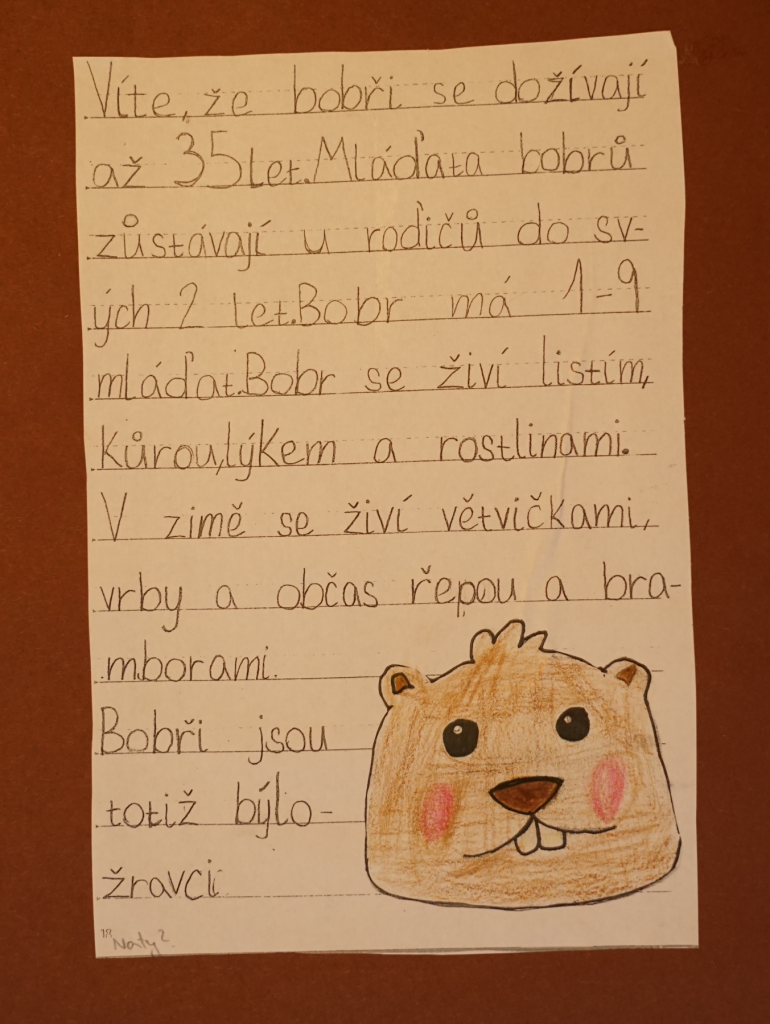 Víte, že bobři se dožívají
až 35 let. Mláďata bobrů
zůstávají u rodičů do sv-
ých 2 let. Bobr má 1-9
mláďat. Bobr se živí listím,
kůrou, lýkem a rostlinami.
V zimě se živí větvičkami,
vrby a občas řepou a bra-
mborami.
Bobři jsou
totiž býlo-
žravci